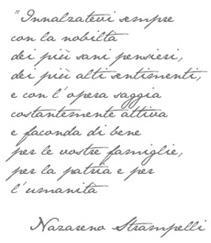 "Innalzatevi sempre
con la nobiltà
dei più sani pensieri,
dei più alti sentimenti,
e con l'opera saggia
costantemente attiva
e faconda di bene
per le vostre famiglie,
per la patria e per
l'umanità
Nazareno Strampelli